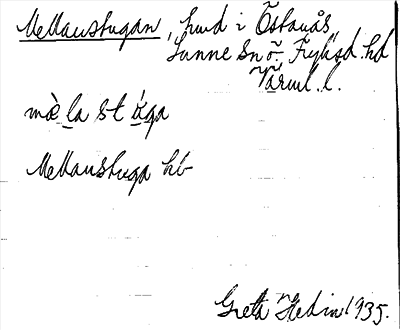 Mellanstugan, hmd i Östanås,
Sunne sn ö. Fryksd. hd
Värml. l.
mè̱la st ɷ́ga
Mellanstuga hb
Greta Hedin 1935.